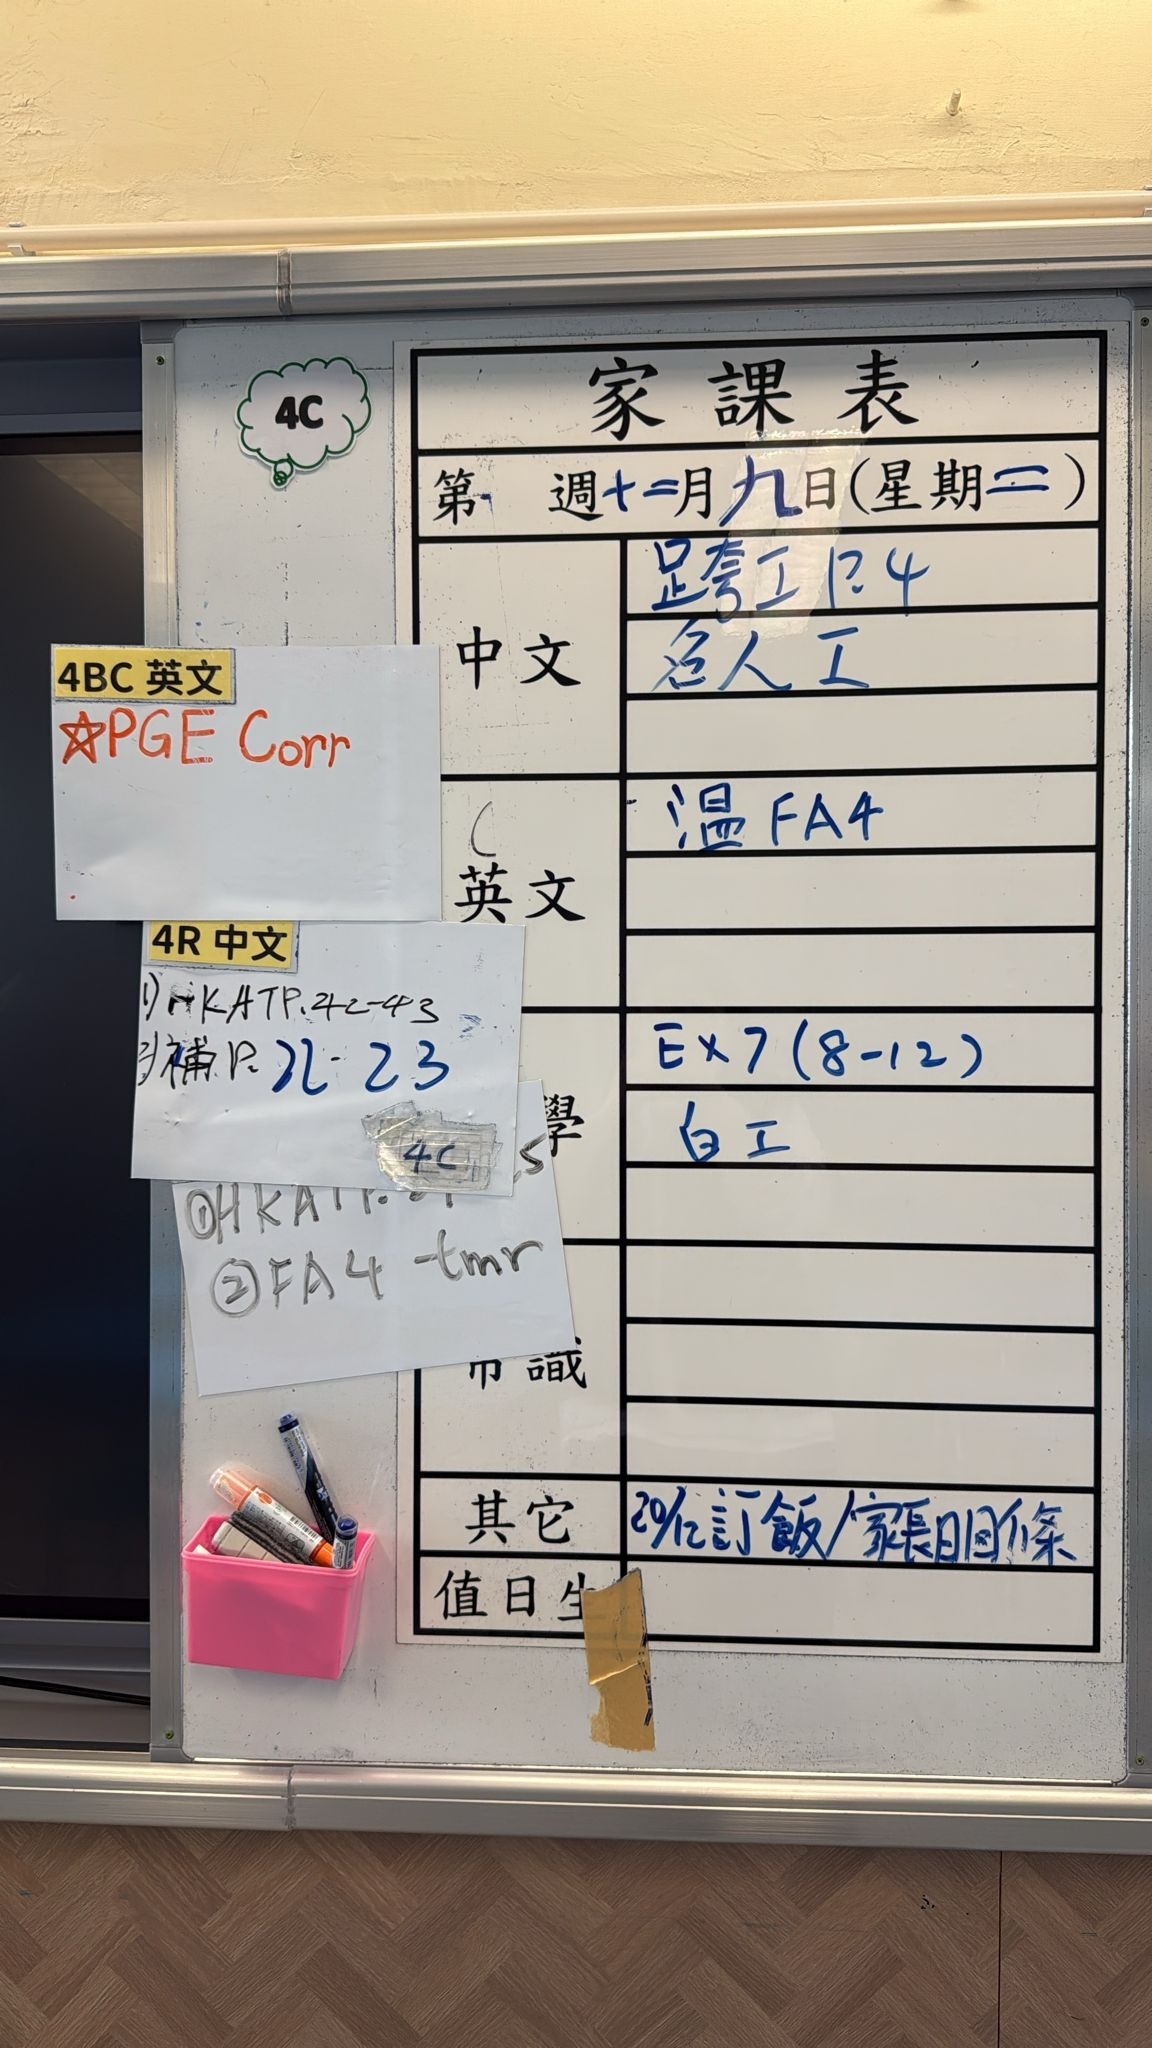 4C
家課表
第 週十二月九日(星期二)
中文
跨工 P.4
名人工
英文
溫 FA4
學
Ex7(8-12)
白工
常識
其它
20/12訂飯/家長日回條
值日生
4BC 英文
☆PGE Corr
4R 中文
1) HKATP.42-43
補P. 22-23
4C
①HKATP.
②FA4 -tmr